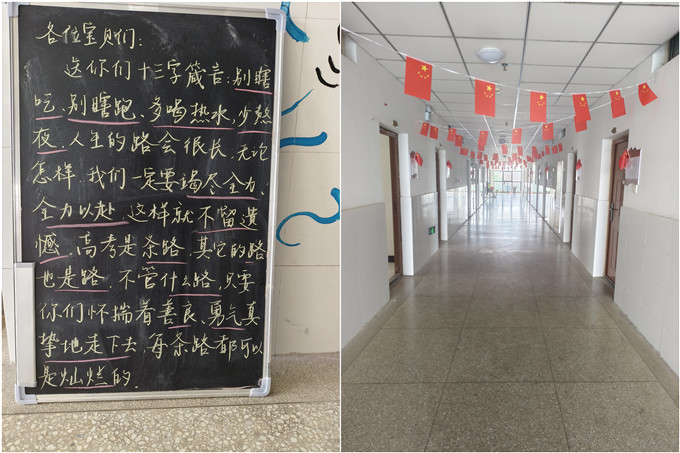 各位宝贝们：
送你们十三字箴言：别瞎
吃、别瞎跑、多喝热水，少熬
夜。人生的路会很长，无论
怎样，我们一定要竭尽全力、
全力以赴，这样就不留遗
憾。高考是条路，其它的路
也是路。不管什么路，只要
你们怀揣着善良、勇气真
挚地走下去，每条路都可以
是灿烂的。